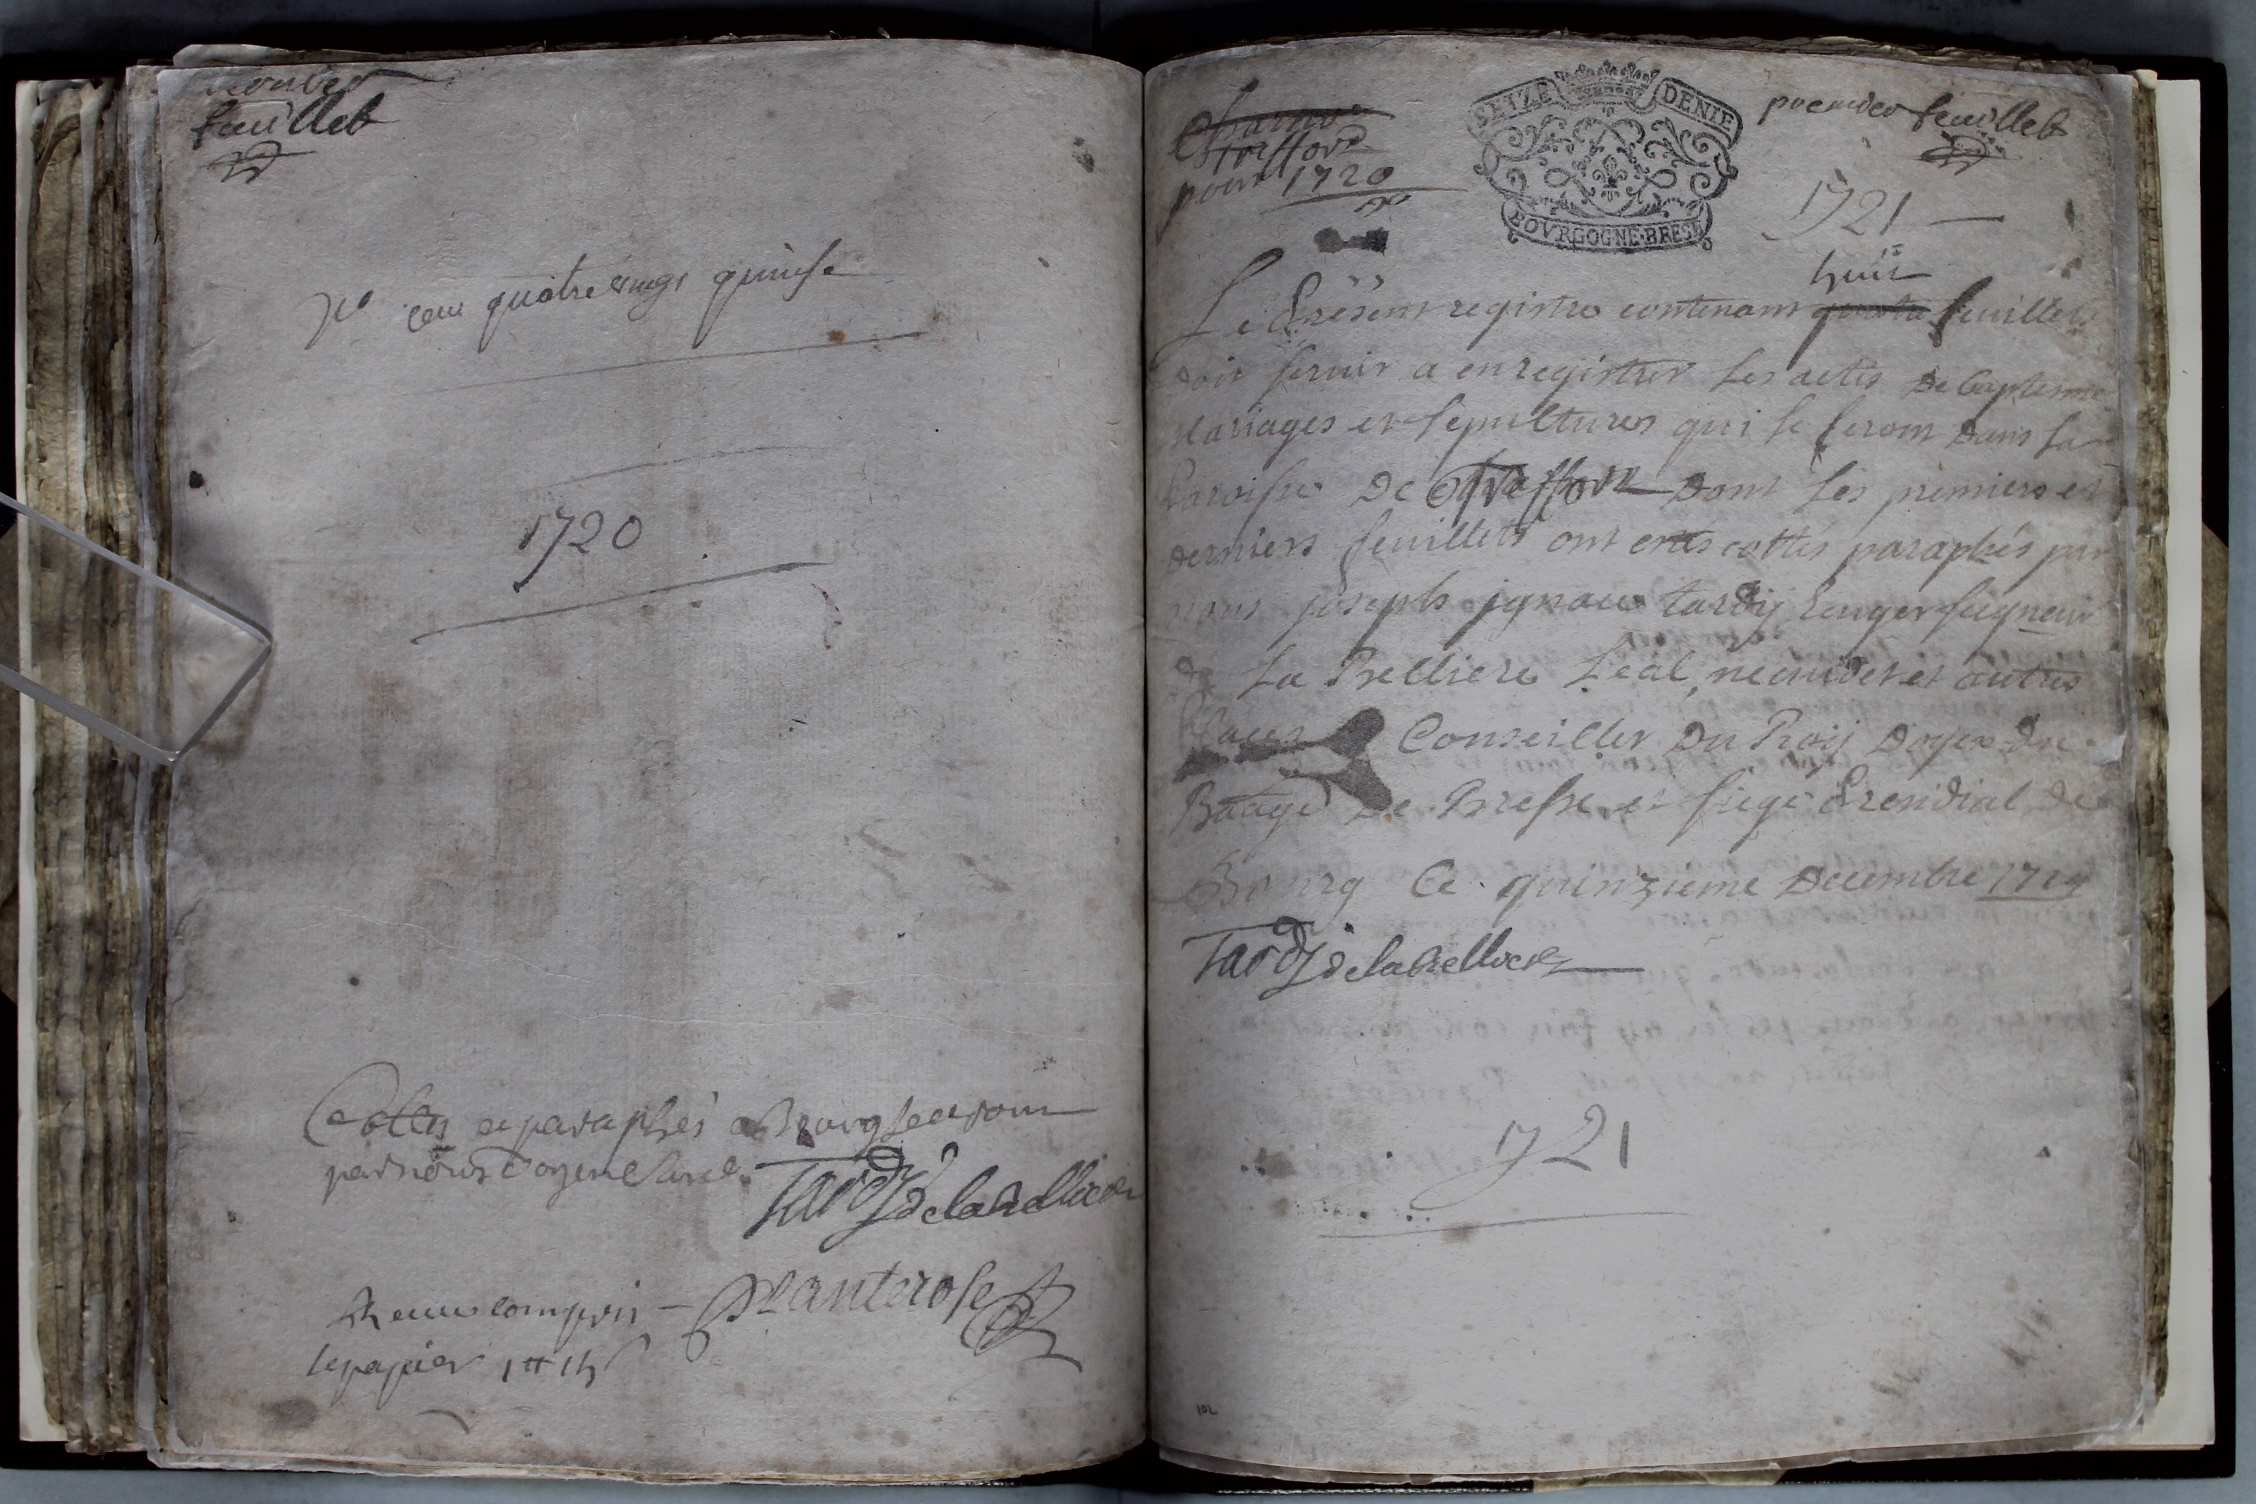 feuillet
No cent quatre vings quinse
1720
Cottes et paraphés a Bourg led jour
par nous doyen
Tardy delabelliere
Reçu compris Planterose
le papier 1tt
Treffort
pour 1720
SEIZE DENIE
BOVRGOGNE·BRESE
premier feuillet
1721
huit
Le présent registre contenant quatre feuillets
doit servir a enregistrer les actes de baptesme
Mariages et sepultures qui se feront dans la
Paroisse de Treffort dont les premiers et
derniers feuillets ont estés cottés paraphés par
nous joseph ignace tardy Seigneur
de La Belliere Leal, et autres
Places Conseiller Du Roy Doyen du
Baage De Bresse et siege Presidial de
Bourg Ce quinzieme Decembre 1719
Tardy delabelliere
1721
102